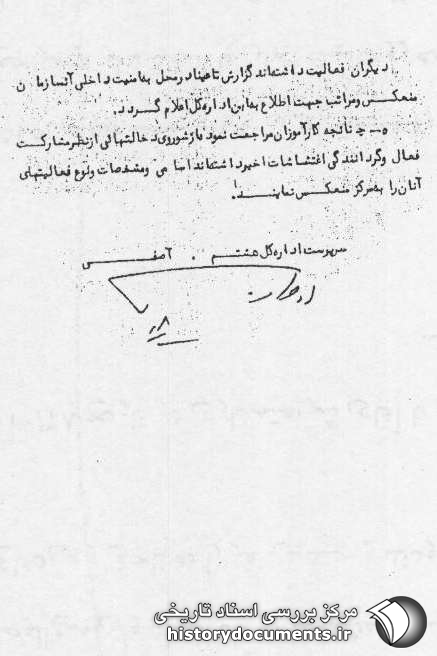 دیگران فعالیت داشته‌اند گزارش تا عینا در محل به امنیت داخلی آنسازمان
منعکس و مراتب جهت اطلاع به این اداره کل اعلام گردد.
ه – چنانچه کارآموزان مراجعت نموده از شوروی دخالتهائی از نظر مشارکت
فعال و گردانندگی اغتشاشات اخیر داشته‌اند اسامی و مشخصات و نوع فعالیتهای
آنان را به مرکز منعکس نمایند.
سرپرست اداره کل هشتم . آصفی
مرکز بررسی اسناد تاریخی
historydocuments.ir